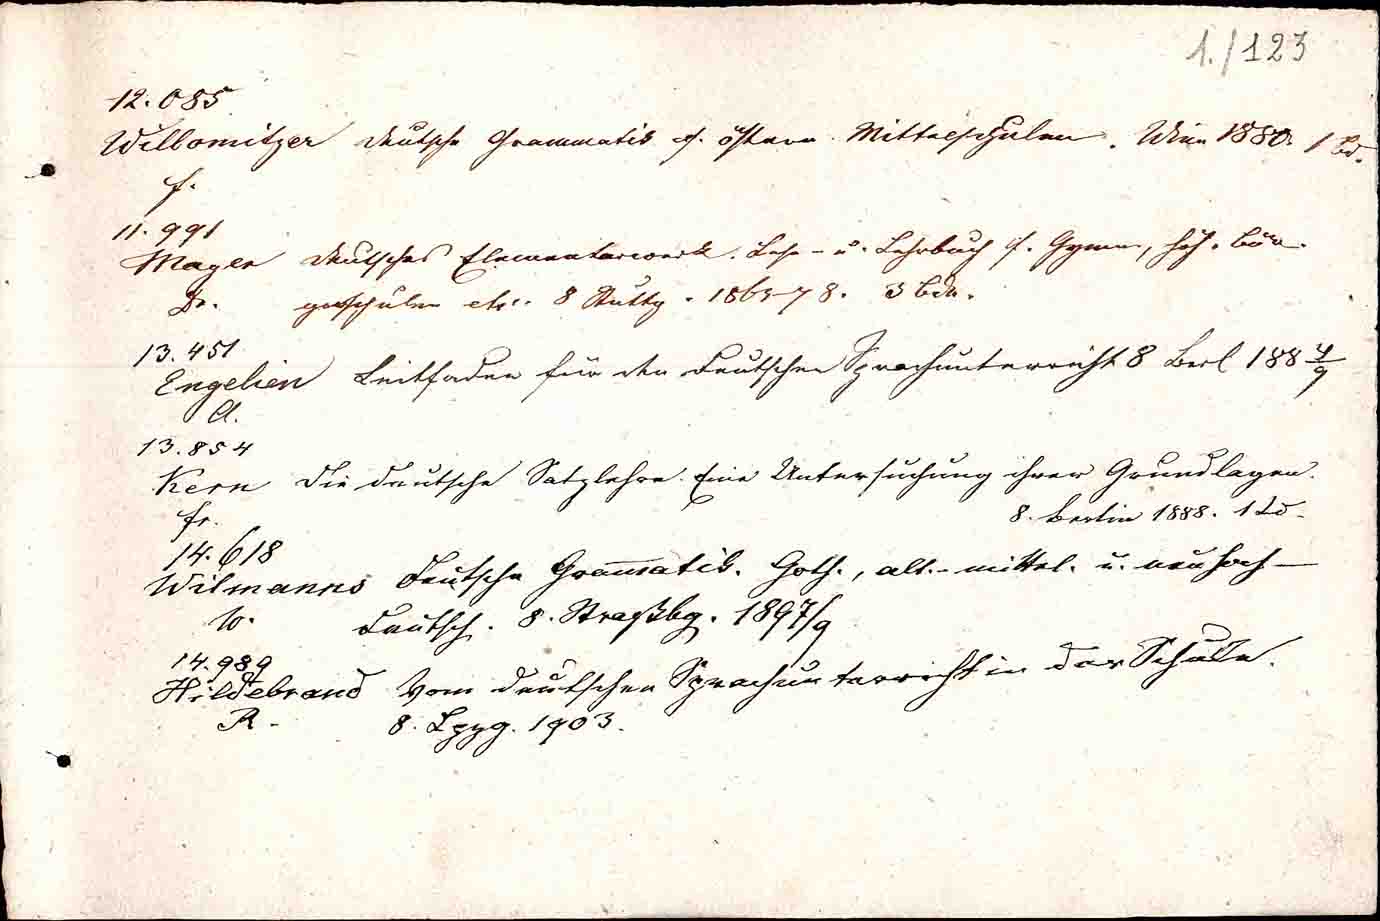 1./123
12.085
Willomitzer Deutsche Grammatik f. österr. Mittelschulen. Wien 1880. 1 Bd.
F.
11.991
Mager Deutsches Elementarwerk. Lese- u. Lehrbuch f. Gymn., höh. Bür-
Dr. gerschulen etc. 8 Stuttg. 1863-78. 3 Bde.
13.451
Engelien Leitfaden für den deutschen Sprachunterricht 8 Berl 188 4/9
A.
13.854
Kern Die deutsche Satzlehre. Eine Untersuchung ihrer Grundlagen.
Fr. 8. Berlin 1888. 1 Bd.
14.618
Wilmanns Deutsche Grammatik. Goth., alt.- mittel. u. neuhoch-
W. Deutsch. 8. Straßbg. 1897/9
14.989
Hildebrand Vom deutschen Sprachunterricht in der Schule.
R. 8. Lpzg. 1903.